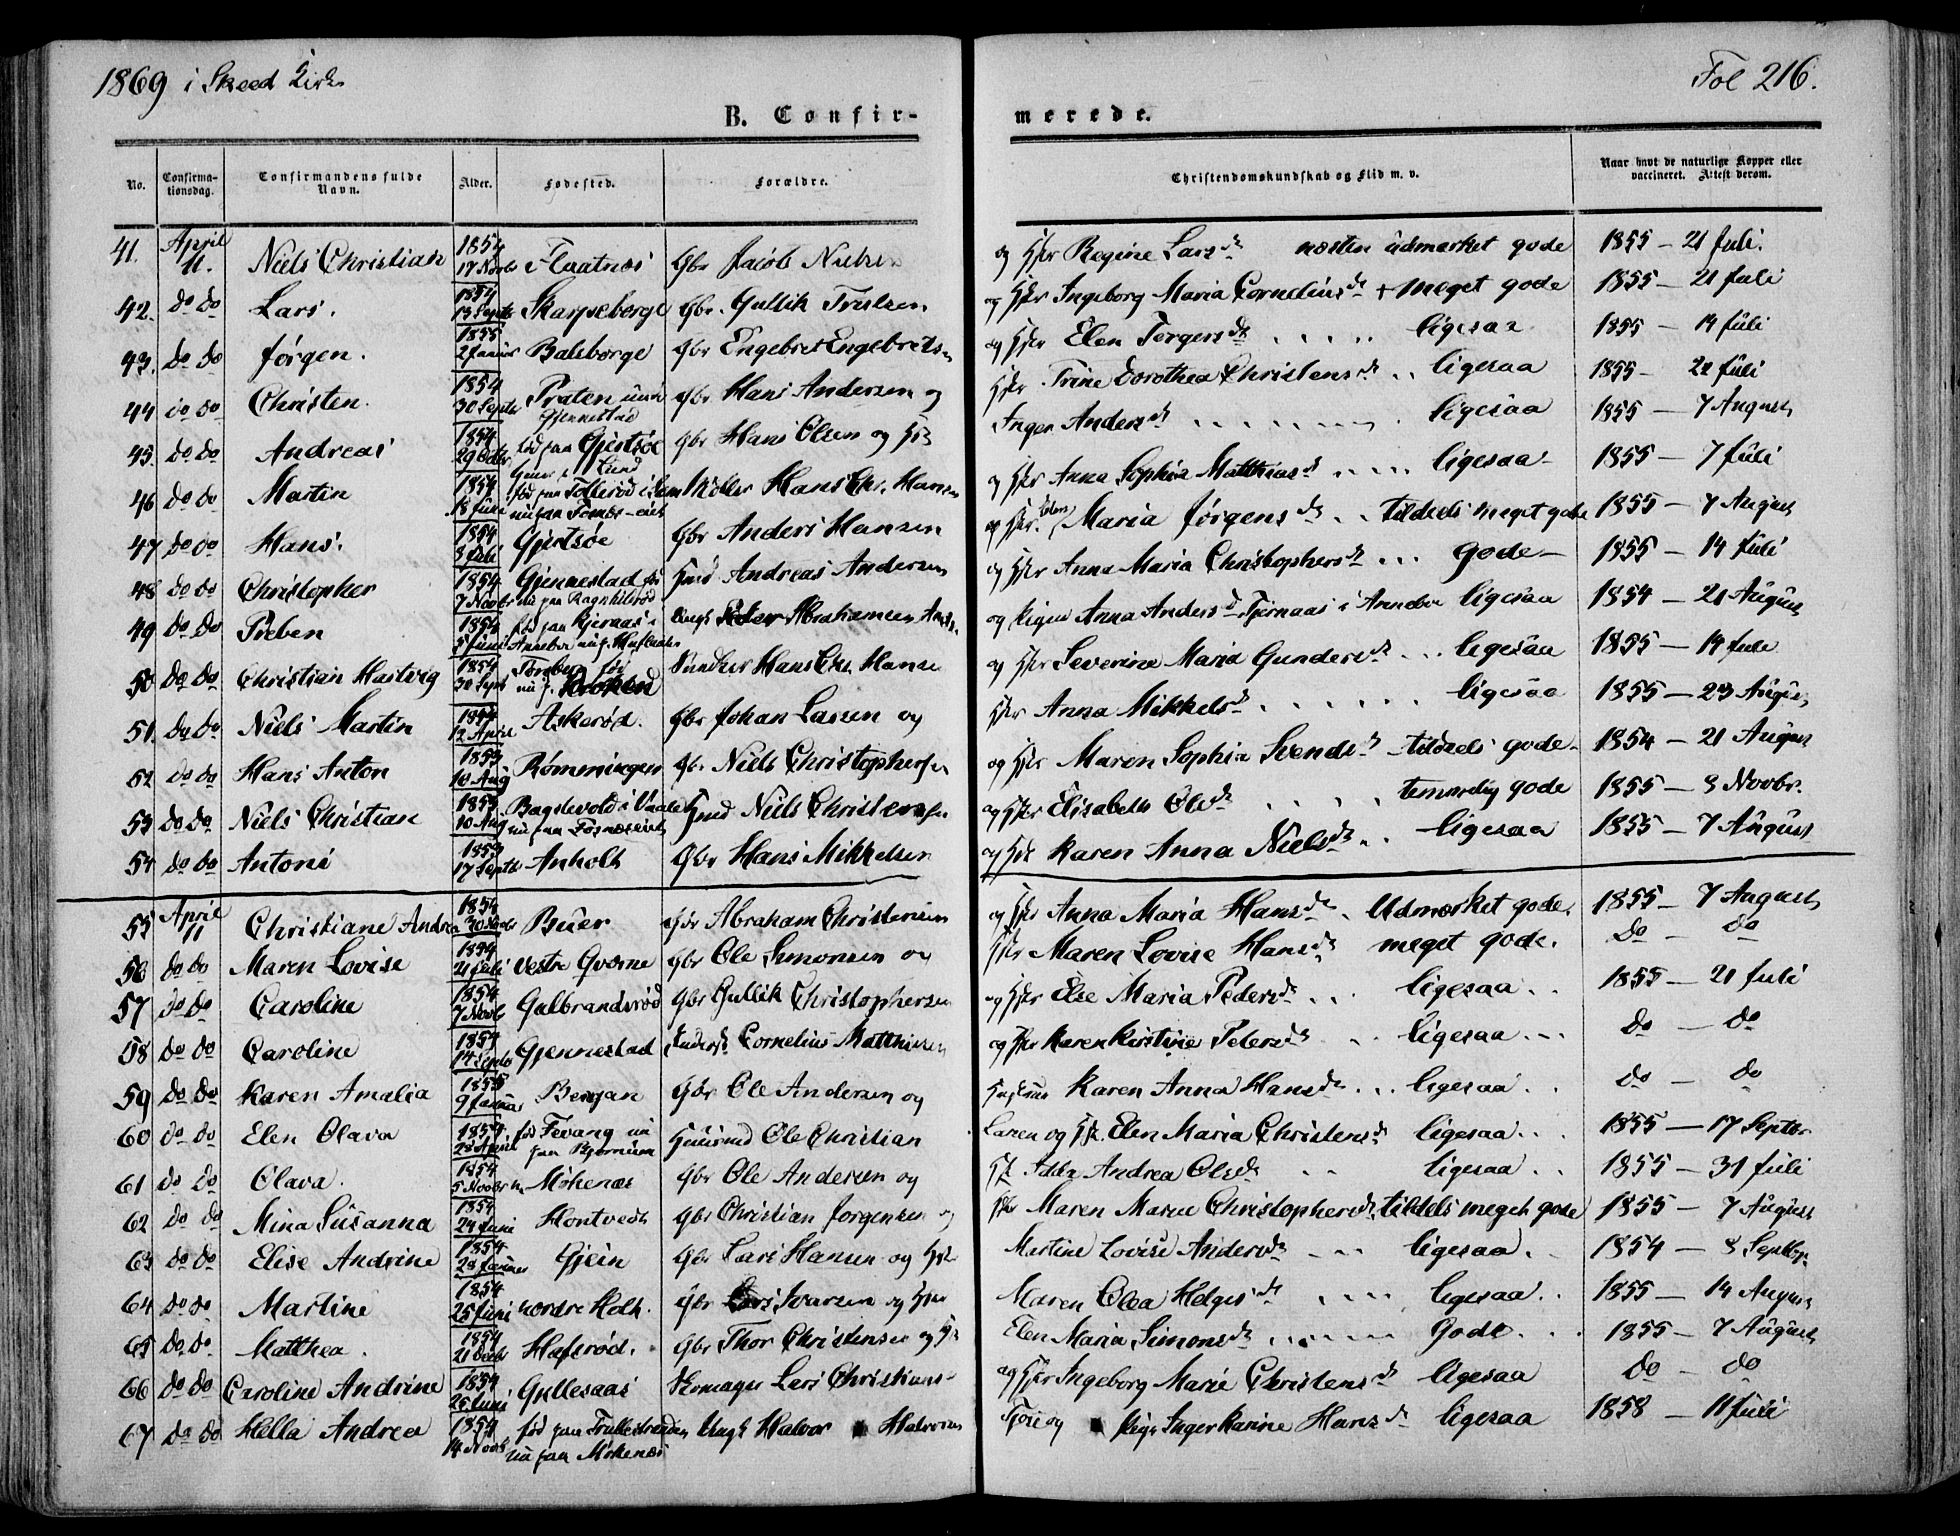 1869 i Skeed Kirke
Fol 216.
B. Confirmerede.
No. Confirmationsdag. Confirmandens fulde Navn. Alder. Fødested. Forældre. Christendomskundskab og Flid m. v. Naar havt de naturlige Kopper eller vaccineret. Attest derom.
41. April 11. Niels Christian 1854 17 Novbr Flaatnæs Gbr Jacob Nielsen og Hstr Regine Larsd. næsten udmærket gode 1855 – 21 Juli.
42. do do Lars. 1854 13 Septbr Skarpseberge Gbr. Gullik Trulsen og Hstr Ingeborg Maria Corneliusd. + meget gode 1855 – 21 Juli
43. do do Jørgen. 1855 2 Januar Bakeborge Gbr Engebret Engebretsen og Hstr Elen Torgersd. ligesaa 1855 – 14 Juli
44 do do Christen. 1854 30 Septbr Praten under Gjennestad Gbr Hans Andersen og Hstr Trine Dorothea Christensd. ligesaa 1855 – 21 Juli
45. do do Andreas 1854 29 Octbr fød paa Gjertsøe Gbr Hans Olsen og Hstr Inger Andersd. ligesaa 1855 – 7 August
46 do do Martin 1854 18 Juni Møller Hans Chr. Hansen og Hstr Anna Sophia Matthiasd. ligesaa 1855 – 7 Juli
47 do do Hans. 1854 8 Juli Gjertsøe Gbr Anders Hansen og Hstr. Maria Jørgensd. tildeels meget gode 1855 – 7 August
48 do do Christopher 1854 7 Novbr Gjennestad nu paa Ragnhilsrød Hmd Andreas Andersen og Hstr Anna Maria Christophersd. Gode 1855 – 14 Juli
49 do do Preben 1854 5 Juni Ungk Abrahamsen og Pigen Anna Andersd. Fjernaas i Annebo ligesaa 1854 – 21 August
50 do do Christian Hartvig 1854 30 Sept Hans Chr. Hansen og Hstr Severine Maria Gundersd. ligesaa 1855 – 14 Juli
51. do do Niels Martin 1854 12 April Askerød. Gbr Johan Larsen og Hstr Anna Mikkelsd. ligesaa 1855 – 23 August
52 do do Hans Anton 1853 10 Aug Rømmingen Gbr. Niels Christophersen og Hstr Maren Sophia Svendsd. tildeels gode 1854 – 21 August
53 do do Niels Christian 1853 10 Aug Bagstevold i Vaale Hmd Niels Christensen og Hstr Elisabeth Olsd. temmelig gode 1855 – 8 Novbr.
54 do do Antoni 1853 17 Septbr Anholt Gbr Hans Mikkelsen og Hstr Karen Anna Nielsd. ligesaa 1855 – 7 August
55 April 11 Christiane Andrea 1854 Buer Gbr Abraham Christensen og Hstr Anna Maria Hansd. Udmærket gode. 1855 – 7 August
56 do do Maren Lovise 1854 21 Juli Vestre Qværne Gbr Ole Simonsen og Hstr Maren Lovise Hansd. meget gode. do – do
57 do do Caroline 1854 7 Novbr Gulbrandsrød Gbr Gullik Christophersen og Hstr Else Maria Pedersd. ligesaa 1855 – 21 Juli
58 do do Caroline 1854 14 Septbr Gjennestad Cornelius Matthisen og Hstr Karen Kirstine Pedersd. ligesaa do – do
59 do do Karen Amalia 1855 9 Januar Bergan Gbr Ole Andersen og Karen Anna Hansd. ligesaa do – do
60 do do Elen Olava 1854 23 April fød Fevang nu paa Bjørnum Huusmd Ole Christian Larsen og Hst. Elen Maria Christensd. ligesaa 1855 – 17 Septbr
61 do do Olava. 1854 5 Novbr Møkenæs Gbr Ole Andersen og Hst. Andrea Olsd. ligesaa 1855 – 31 Juli
62 do do Mina Susanna 1854 24 Juni Hontvedt Gbr Christian Jørgensen og Hstr Maren Marie Christophersd. tildels meget gode 1855 – 7 August
63 do do Elise Andrine 1854 28 Januar Gjein Gbr Lars Hansen og Hstr Martine Lovise Andersd. ligesaa 1854 – 8 Septbr
64 do do Martine 1854 25 Juni nordre Holt. Gbr Lars Ivarsen og Hstr Maren Olea Helgesd. ligesaa 1855 – 14 August
65 do do Matthea. 1854 21 Octbr Hafsrød. Gbr Thor Christensen og Hstr Elen Maria Simonsd. Gode. 1855 – 7 August
66 do do Caroline Andrine 1854 25 Juni Gullesaas Skomager Lars Christians- og Hstr Ingeborg Marie Christensd. ligesaa do – do
67 do do Hella Andrea 1854 14 Novbr nu paa Møkenæs Ungk Halvor Halvorsen Fjære og Pige Inger Karine Hansd. ligesaa 1858 – 11 Juli